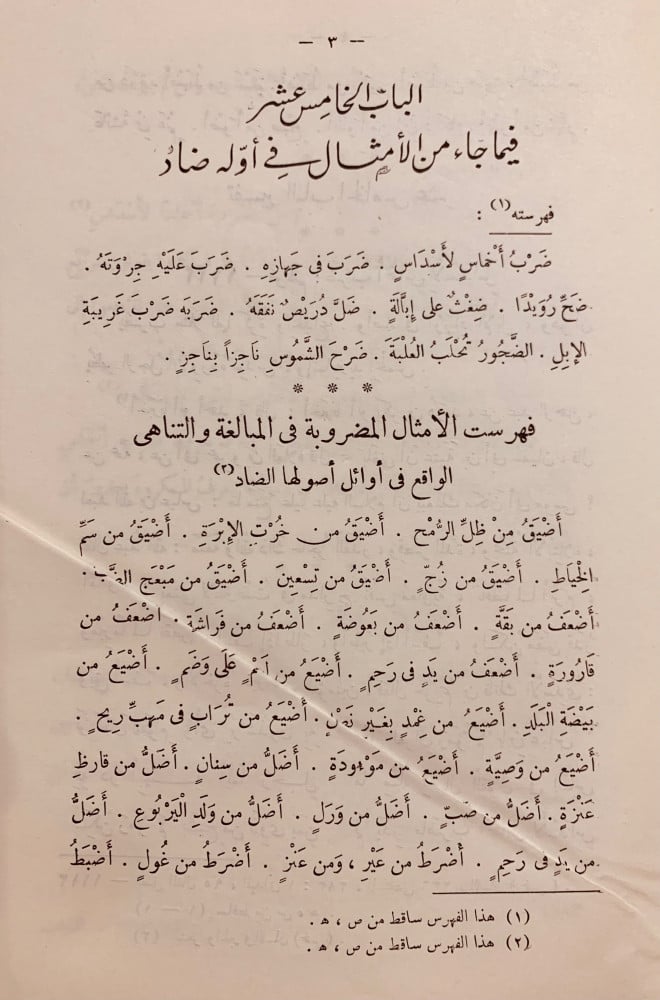 — ٣ —
الباب الخامس عشر
فيما جاء من الأمثال في أوله ضاد
فهرسته (١) :
ضَرْبُ أخْماسٍ لأسْدَاسٍ . ضَرَبَ فى جَهازِهِ . ضَرَبَ عَلَيْهِ جِرْوَتَهُ .
ضَحِّ رُوَيْدًا . ضِغْثٌ على إبَّالَةٍ . ضَلَّ دُرَيْصٌ نَفَقَهُ . ضَرَبَه ضَرْبَ غَرِيبَةِ
الإبِلِ . الضَّجُورُ تُحْلَبُ العُلْبَةَ . ضَرْحَ الشَّمُوسِ نَاجِزاً بِنَاجِزٍ .
* * *
فهرست الأمثال المضروبة فى المبالغة والتناهى
الواقع فى أوائل أصولها الضاد (٢)
أضْيَقُ مِنْ ظِلِّ الرُّمْحِ . أضْيَقُ من خُرْتِ الإبْرَةِ . أضْيَقُ من سَمِّ
الخِيَاطِ . أضْيَقُ من زُجٍّ . أضْيَقُ من تِسْعِينَ . أضْيَقُ من مَبْعَجِ الضَّبِّ .
أضْعَفُ من بَقَّةٍ . أضْعَفُ من بَعُوضَةٍ . أضْعَفُ من فَرَاشَةٍ . اضْعَفُ من
قَارُورَةٍ . أضْعَفُ من يَدٍ فى رَحِمٍ . أضْيَعُ من لَحْمٍ عَلَى وَضَمٍ . أضْيَعُ من
بَيْضَةِ البَلَدِ . أضْيَعُ من غِمْدٍ بِغَيْرِ نَصْلٍ . أضْيَعُ من تُرَابٍ فى مَهَبِّ رِيحٍ .
أضْيَعُ من وَصِيَّةٍ . أضْيَعُ من مَوْءودَةٍ . أضَلُّ من سِنانٍ . أضَلُّ من قارظِ
عَنَزَةٍ . أضَلُّ من ضَبٍّ . أضَلُّ من وَرَلٍ . أضَلُّ من وَلَدِ اليَرْبُوعِ . أضَلُّ
من يَدٍ فى رَحِمٍ . أضْرَطُ من عَيْرٍ ، وَمن عَنْزٍ . أضْرَطُ من غُولٍ . أضْبَطُ
(١) هذا الفهرس ساقط من ص ، ه .
(٢) هذا الفهرس ساقط من ص ، ه .